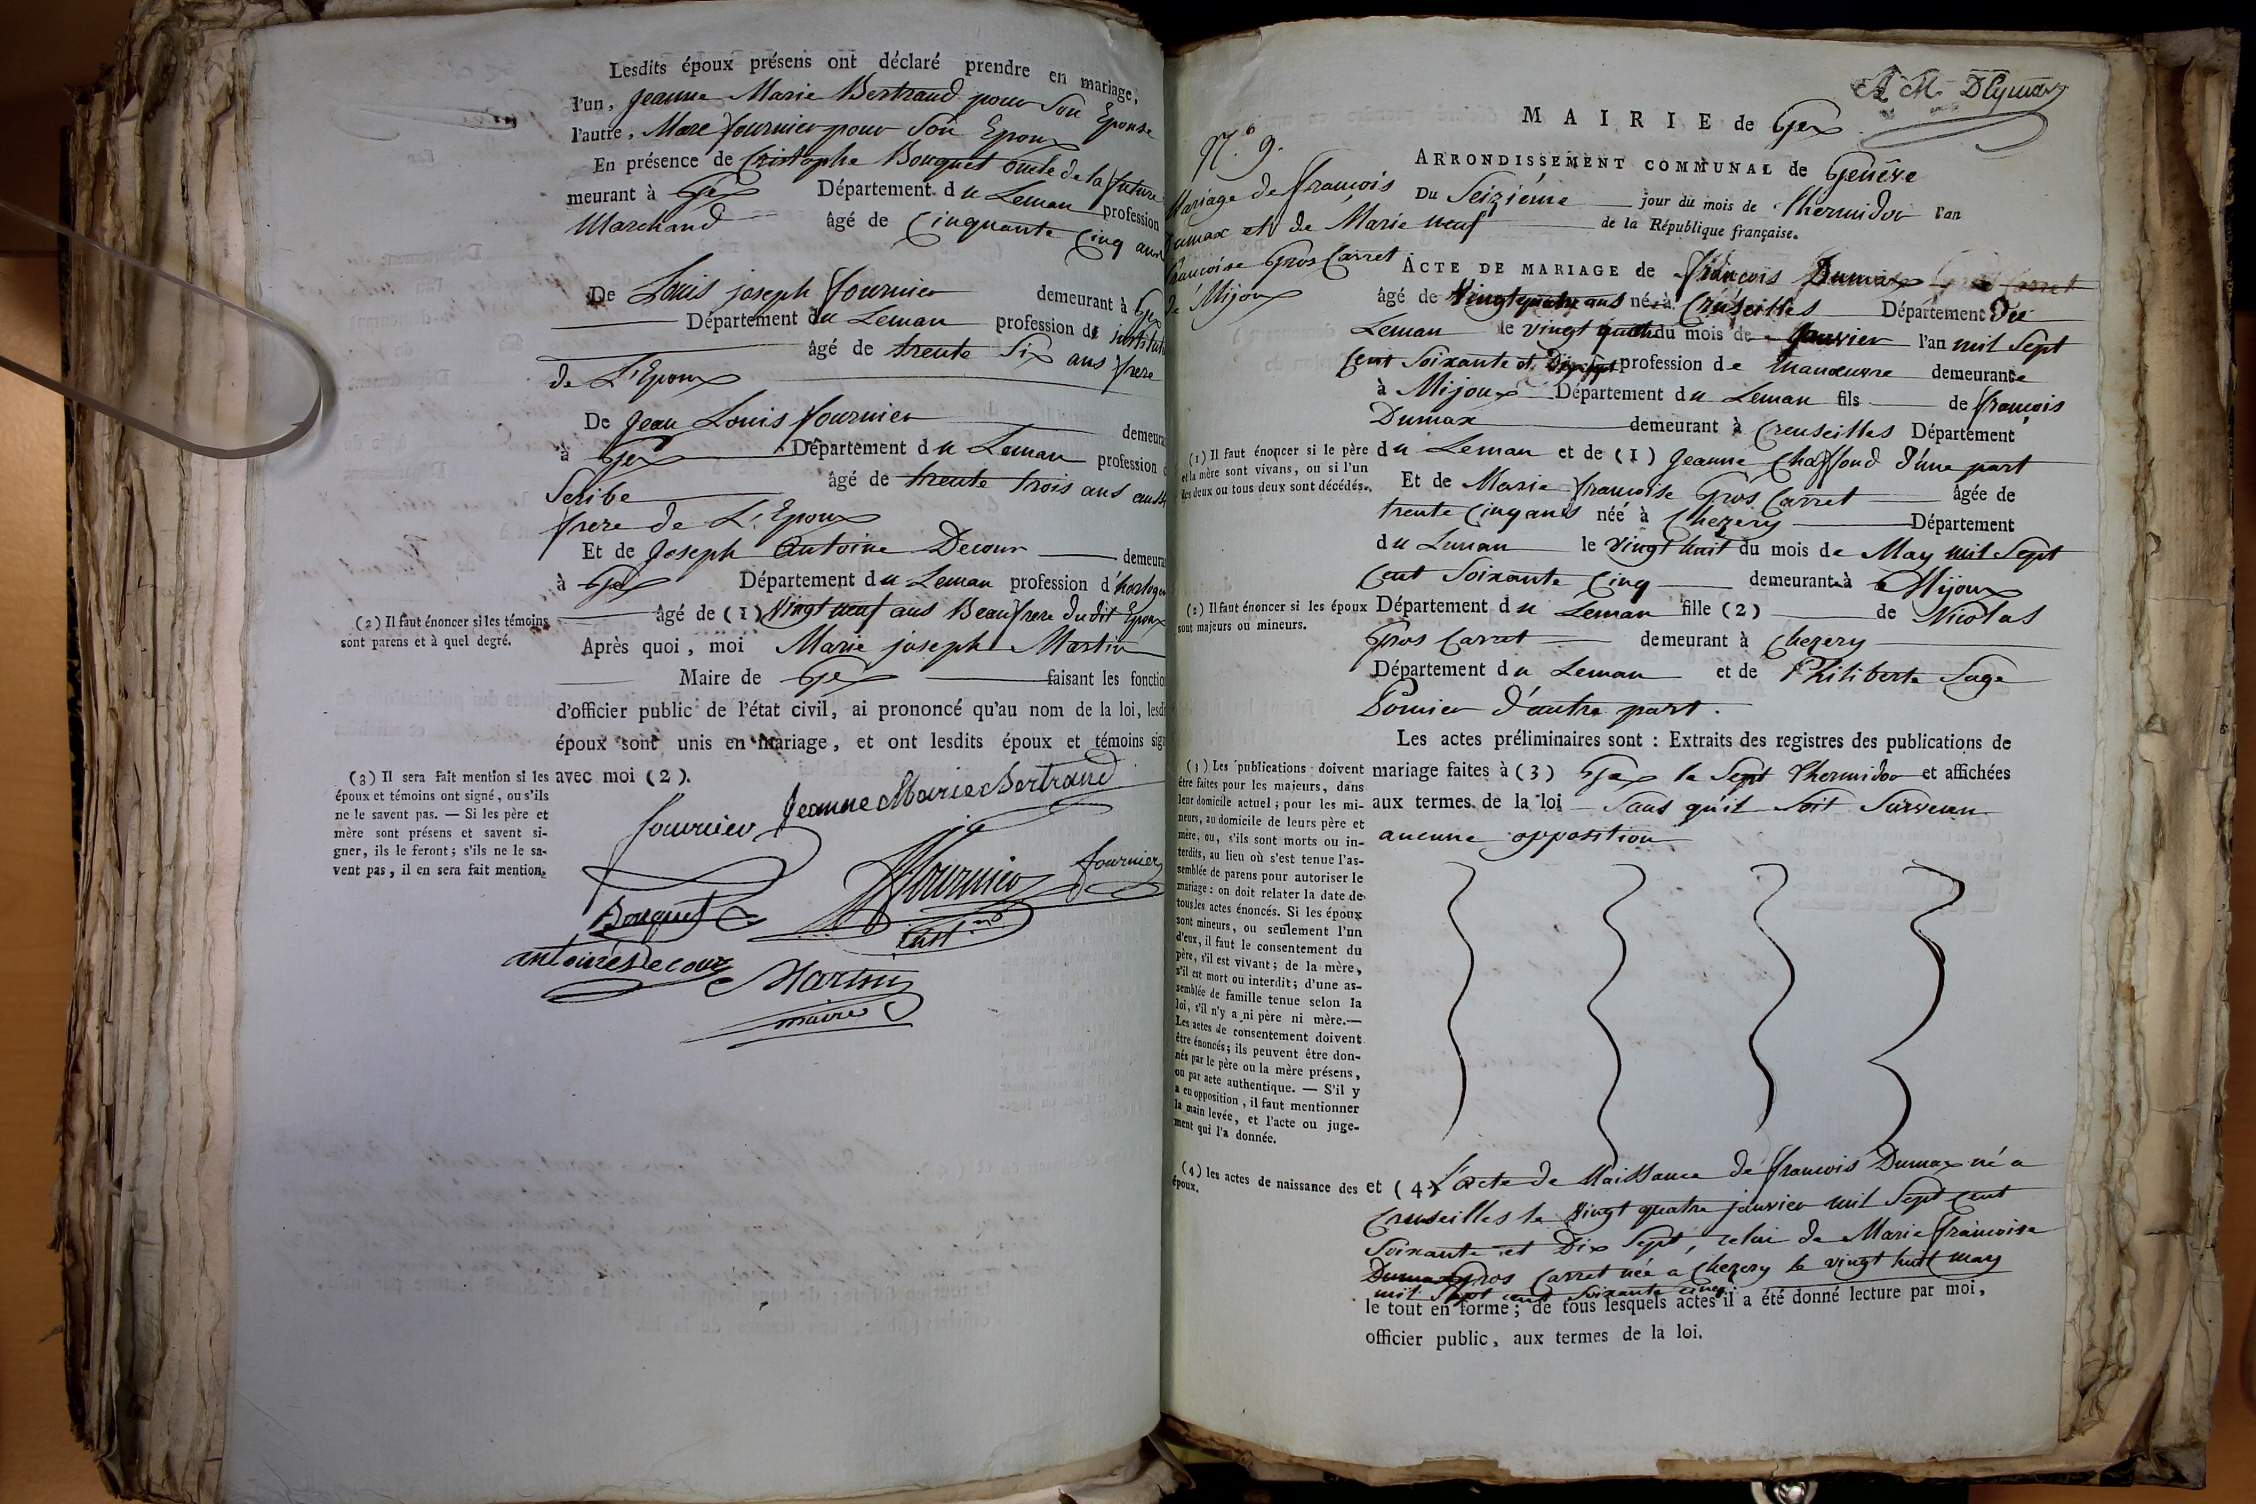 Lesdits époux présens ont déclaré prendre en mariage,
l'un, Jeanne Marie Bertrand pour Son Epouse
l'autre, Marc fournier pour Son Epoux
En présence de Cristophe Bouquet oncle de la future
meurant à Gex Département du Leman profession
Marchand âgé de Cinquante Cinq ans
De Louis joseph fournier demeurant à Gex
Département du Leman profession d'
âgé de trente Six ans frere
de L'Epoux
De Jean Louis fournier demeura
à Gex Département du Leman profession
Scribe âgé de trente trois ans aussi
frere de L'Epoux
Et de Joseph Antoine Decour demeura
à Gex Département du Leman profession d'horloger
âgé de (1) Vingt neuf ans Beaufrere dudit Epoux
(2) Il faut énoncer si les témoins
sont parens et à quel degré.
Après quoi, moi Marie joseph Martin
Maire de Gex faisant les fonctio
d'officier public de l'état civil, ai prononcé qu'au nom de la loi, lesdi
époux sont unis en mariage, et ont lesdits époux et témoins sign
avec moi (2).
(3) Il sera fait mention si les
époux et témoins ont signé, ou s'ils
ne le savent pas. — Si les père et
mère sont présens et savent si-
gner, ils le feront; s'ils ne le sa-
vent pas, il en sera fait mention.
fournier Jeanne Marie Bertrand
fournier fournier
Bouquet
antoine Decour Martin
maire
MAIRIE de Gex
N.° 9.
Mariage de françois
Dumax et de Marie
françoise Gros Carret
de Mijoux
ARRONDISSEMENT COMMUNAL de Genève
Du Seizième jour du mois de Thermidor l'an
neuf de la République française.
ACTE DE MARIAGE de françois Dumax
âgé de Vingt quatre ans né à Creuseilles Département du
Leman le vingt quatre du mois de Janvier l'an mil Sept
Cent Soixante et Dix Sept profession de manœuvre demeurant
à Mijoux Département du Leman fils de françois
Dumax demeurant à Creuseilles Département
(1) Il faut énoncer si le père
et la mère sont vivans, ou si l'un
des deux ou tous deux sont décédés.
du Leman et de (1) Jeanne Chaffond d'une part
Et de Marie françoise Gros Carret âgée de
trente Cinq ans née à Chezery Département
du Leman le Vingt huit du mois de May mil Sept
Cent Soixante Cinq demeurant à Mijoux
(2) Il faut énoncer si les époux
sont majeurs ou mineurs.
Département du Leman fille (2) de Nicolas
Gros Carret demeurant à Chezery
Département du Leman et de Philiberte Sage
Pomier d'autre part.
Les actes préliminaires sont : Extraits des registres des publications de
mariage faites à (3) Gex le Sept Thermidor et affichées
aux termes de la loi Sans qu'il Soit Survenu
aucune opposition
(3) Les publications doivent
être faites pour les majeurs, dans
leur domicile actuel; pour les mi-
neurs, au domicile de leurs père et
mère, ou, s'ils sont morts ou in-
terdits, au lieu où s'est tenue l'as-
semblée de parens pour autoriser le
mariage : on doit relater la date de
tous les actes énoncés. Si les époux
sont mineurs, ou seulement l'un
d'eux, il faut le consentement du
père, s'il est vivant; de la mère,
s'il est mort ou interdit; d'une as-
semblée de famille tenue selon la
loi, s'il n'y a ni père ni mère.—
Les actes de consentement doivent
être énoncés; ils peuvent être don-
nés par le père ou la mère présens,
ou par acte authentique. — S'il y
a eu opposition, il faut mentionner
la main levée, et l'acte ou juge-
ment qui l'a donnée.
(4) les actes de naissance des
époux.
et (4) L'acte de Naissance de francois Dumax né a
Creuseilles le Vingt quatre janvier mil Sept Cent
Soixante et Dix Sept, celui de Marie francoise
Gros Carret née a Chezery le vingt huit may
mil Sept cent Soixante cinq
le tout en forme; de tous lesquels actes il a été donné lecture par moi,
officier public, aux termes de la loi.